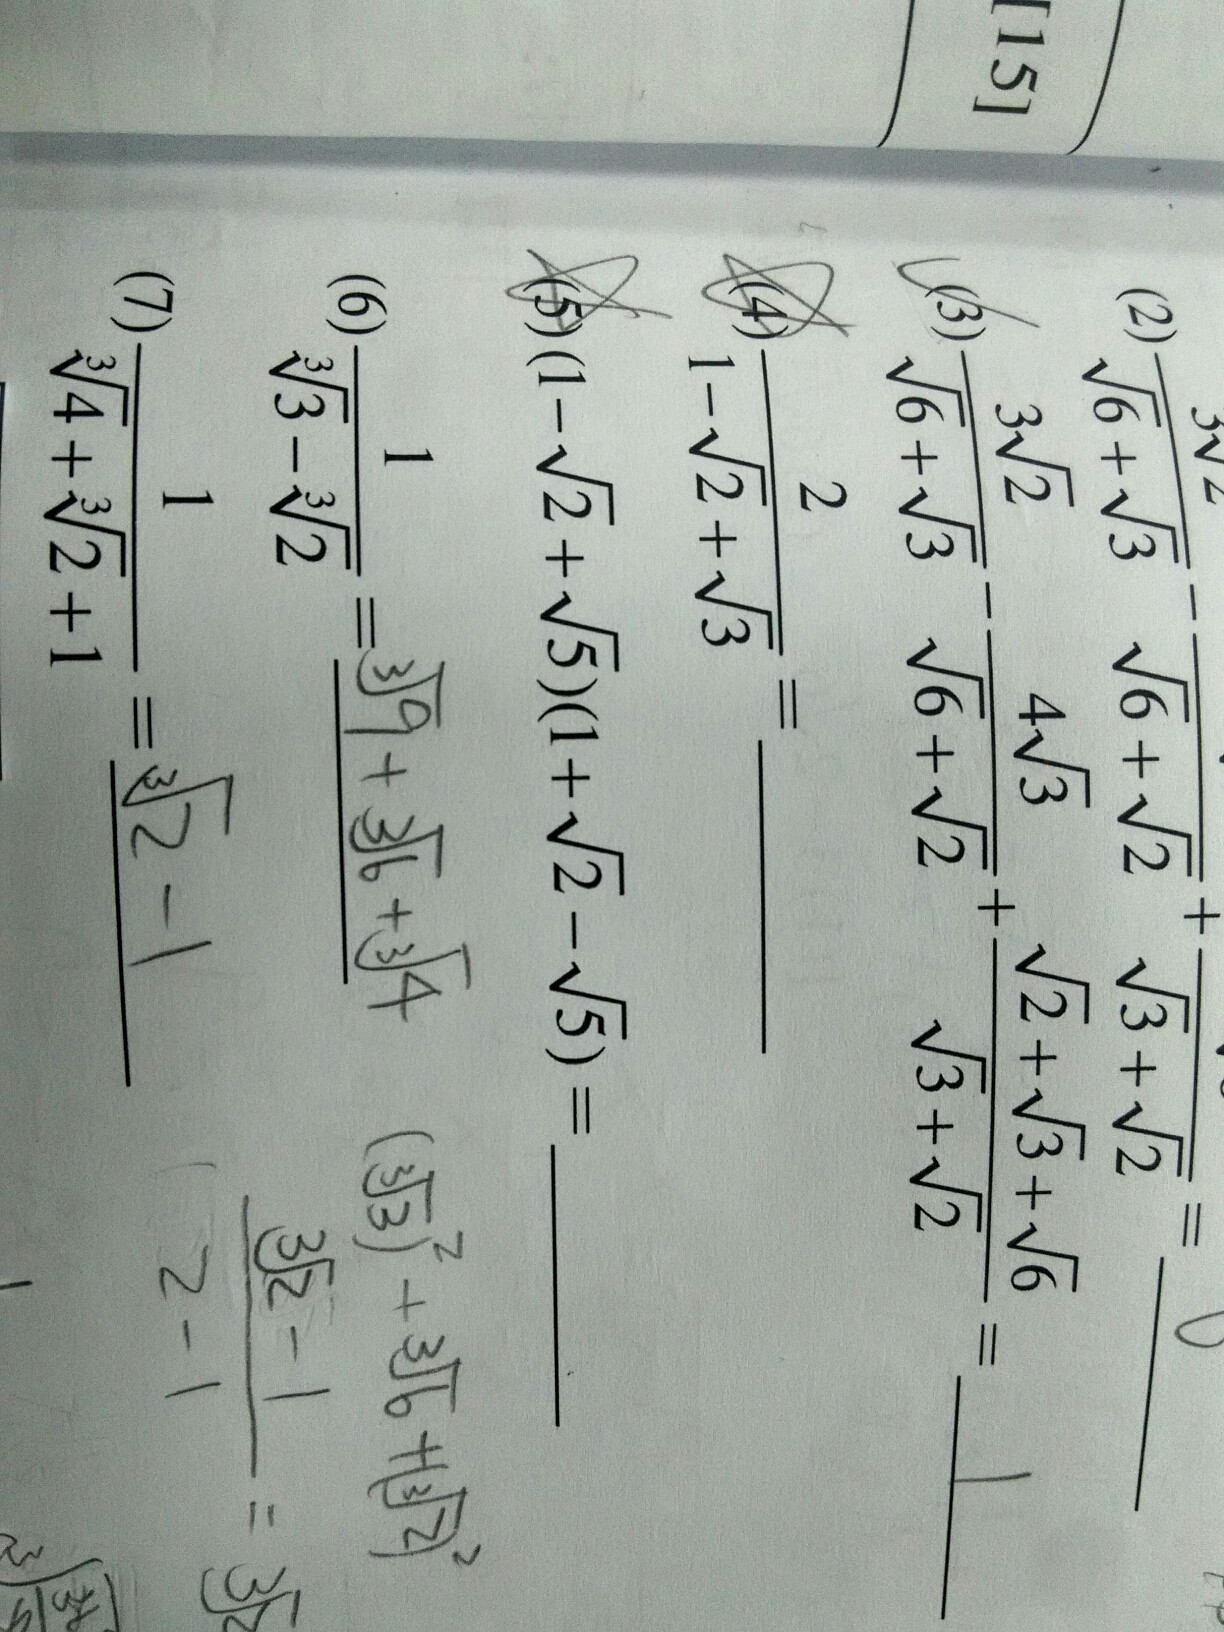 [15]
(2) 3√2/(√6+√3) − /(√6+√2) + /(√3+√2) = 0
(3) 3√2/(√6+√3) − 4√3/(√6+√2) + (√2+√3+√6)/(√3+√2) = 1
(4) 2/(1−√2+√3) =
(5) (1−√2+√5)(1+√2−√5) =
(6) 1/(∛3−∛2) = ∛9+∛6+∛4
(∛3)²+∛6+(∛2)²
(7) 1/(∛4+∛2+1) = ∛2−1
(∛2−1)/(2−1) = ∛2